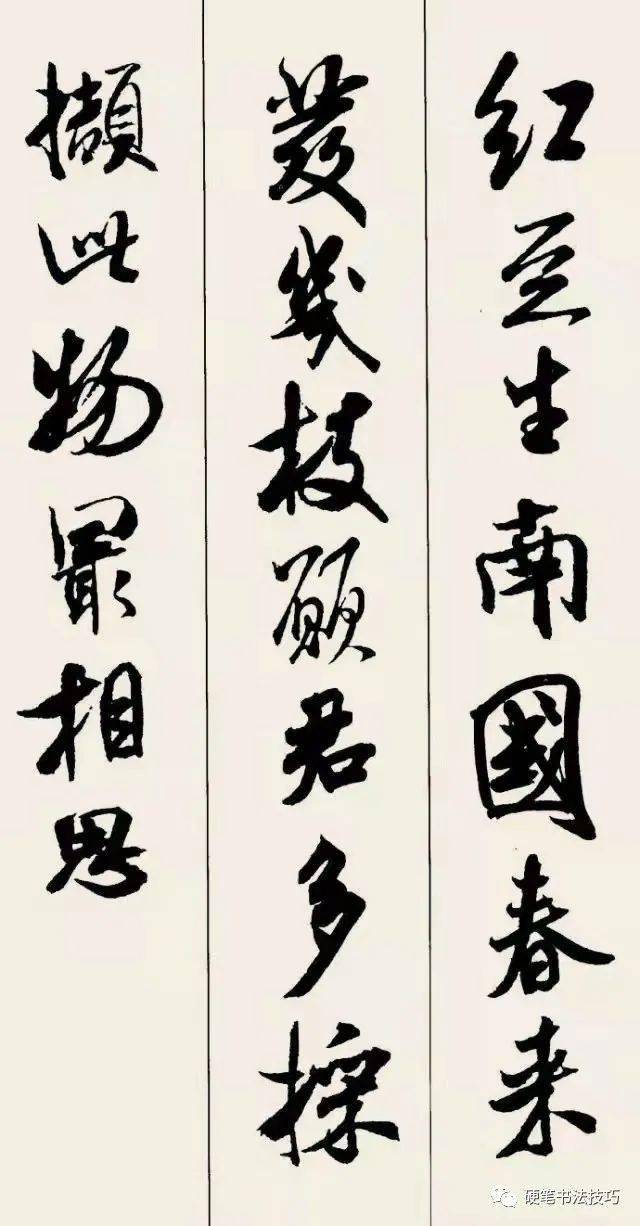 红豆生南國春来
發幾枝願君多採
擷此物最相思
硬笔书法技巧